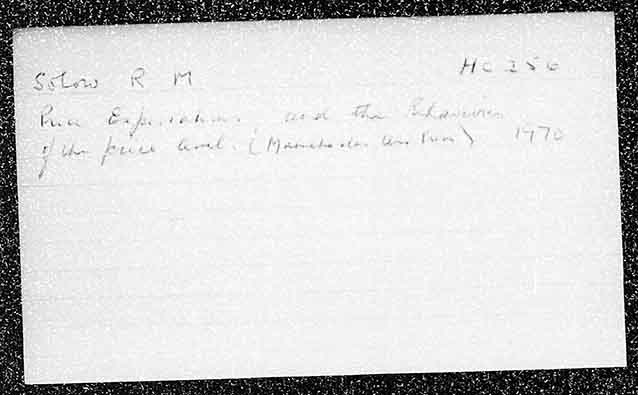 Solow R M HC 256
Price Expectations and the Behaviour
of the price level. (Manchester Univ Press) 1970